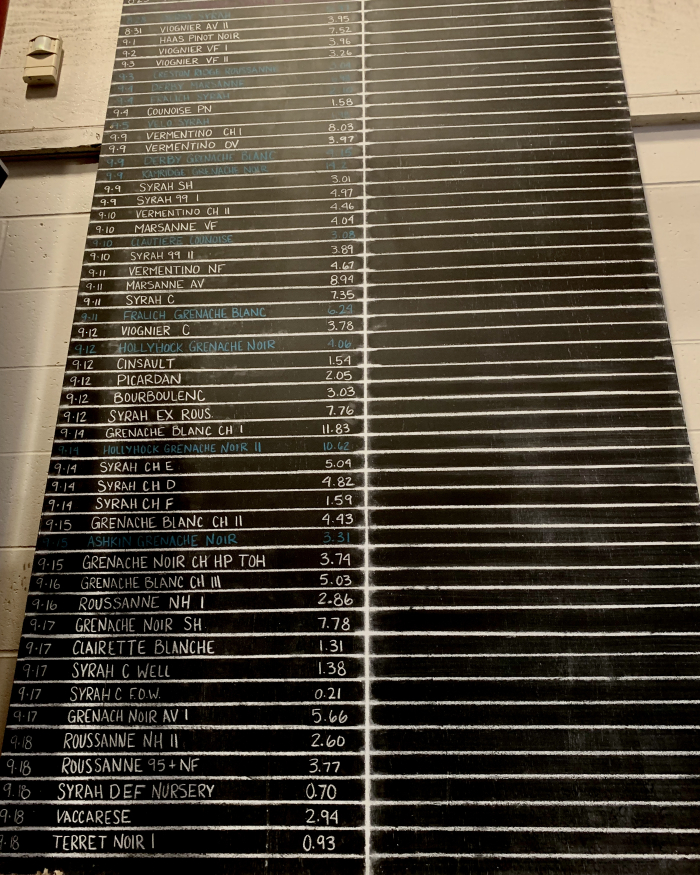 8·31 VIOGNIER AV II 3.95
9·1 HAAS PINOT NOIR 7.52
9·2 VIOGNIER VF I 3.96
9·3 VIOGNIER VF II 3.26
9·3 CRESTON RIDGE ROUSSANNE
9·4 DERBY MARSANNE
9·4 FRALICH SYRAH
9·4 COUNOISE PN 1.58
VELO SYRAH
9·9 VERMENTINO CH I 8.03
9·9 VERMENTINO OV 3.97
9·9 DERBY GRENACHE BLANC
9·9 GRENACHE NOIR
9·9 SYRAH SH 3.01
9·9 SYRAH 99 I 4.97
9·10 VERMENTINO CH II 4.46
9·10 MARSANNE VF 4.04
9·10 CLAUTIERE COUNOISE 3.08
9·10 SYRAH 99 II 3.89
9·11 VERMENTINO NF 4.67
9·11 MARSANNE AV 8.94
9·11 SYRAH C 7.35
9·11 FRALICH GRENACHE BLANC 6.24
9·12 VIOGNIER C 3.78
9·12 HOLLYHOCK GRENACHE NOIR 4.06
9·12 CINSAULT 1.54
9·12 PICARDAN 2.05
9·12 BOURBOULENC 3.03
9·12 SYRAH EX ROUS. 7.76
9·14 GRENACHE BLANC CH I 11.83
9·14 HOLLYHOCK GRENACHE NOIR II 10.62
9·14 SYRAH CH E 5.04
9·14 SYRAH CH D 4.82
9·14 SYRAH CH F 1.59
9·15 GRENACHE BLANC CH II 4.43
9·15 ASHKIN GRENACHE NOIR 3.31
9·15 GRENACHE NOIR CH HP TOH 3.74
9·16 GRENACHE BLANC CH III 5.03
9·16 ROUSSANNE NH I 2.86
9·17 GRENACHE NOIR SH 7.78
9·17 CLAIRETTE BLANCHE 1.31
9·17 SYRAH C WELL 1.38
9·17 SYRAH C F.O.W. 0.21
9·17 GRENACH NOIR AV I 5.66
9·18 ROUSSANNE NH II 2.60
9·18 ROUSSANNE 95+NF 3.77
9·18 SYRAH DEF NURSERY 0.70
9·18 VACCARESE 2.94
9·18 TERRET NOIR I 0.93